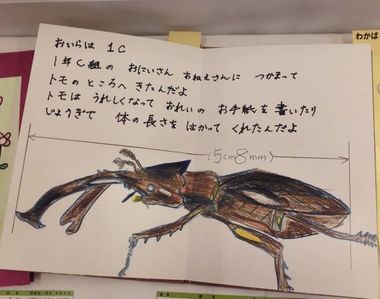 おいらは 1C
1年C組の おにいさん おねえさんに つかまって
トモのところへ きたんだよ
トモは うれしくなって おれいの お手紙を 書いたり
じょうぎで 体の長さを はかって くれたんだよ
(5cm8mm)
わかば